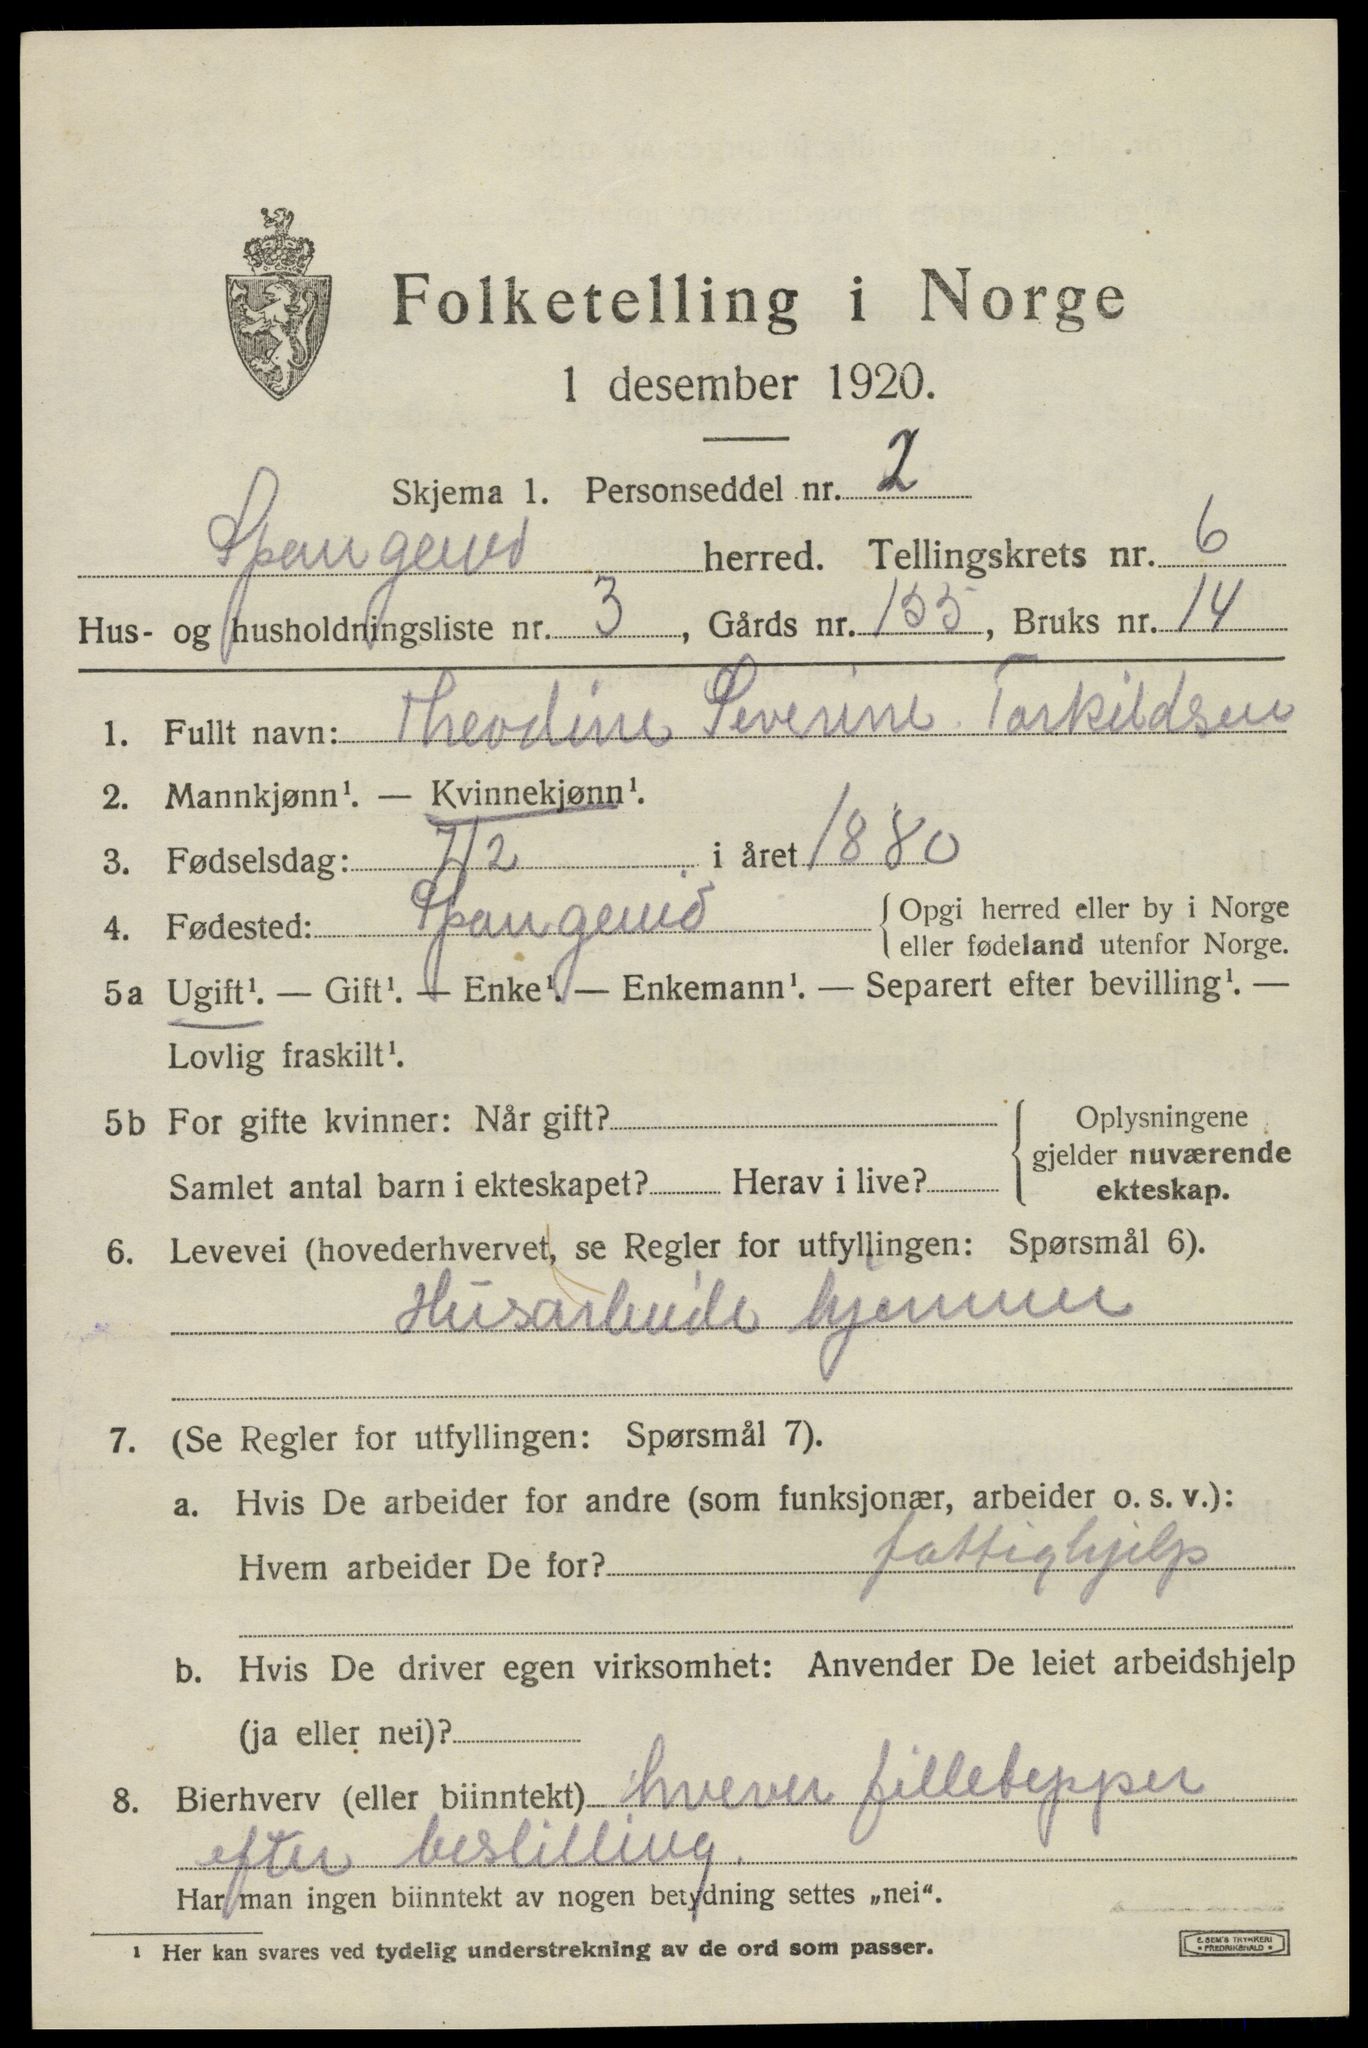 Folketelling i Norge
1 desember 1920.
Skjema 1. Personseddel nr. 2
Spangereid herred. Tellingskrets nr. 6
Hus- og husholdningsliste nr. 3, Gårds nr. 155, Bruks nr. 14
1. Fullt navn: Theodine Severine Torkildsen
2. Mannkjønn¹. — Kvinnekjønn¹.
3. Fødselsdag: 7/2 i året 1880
4. Fødested: Spangereid {Opgi herred eller by i Norge
eller fødeland utenfor Norge.
5a Ugift¹. — Gift¹. — Enke¹. — Enkemann¹. — Separert efter bevilling¹. —
Lovlig fraskilt¹.
5b For gifte kvinner: Når gift? Oplysningene
gjelder nuværende
Samlet antal barn i ekteskapet? Herav i live? ekteskap.
6. Levevei (hovederhvervet, se Regler for utfyllingen: Spørsmål 6).
Husarbeide hjemme
7. (Se Regler for utfyllingen: Spørsmål 7).
a. Hvis De arbeider for andre (som funksjonær, arbeider o. s. v.):
Hvem arbeider De for? fattighjelp
b. Hvis De driver egen virksomhet: Anvender De leiet arbeidshjelp
(ja eller nei)?
8. Bierhverv (eller biinntekt) hvever filletepper
efter bestilling.
Har man ingen biinntekt av nogen betydning settes „nei“.
¹ Her kan svares ved tydelig understrekning av de ord som passer.
E. SEM'S TRYKKERI
FREDRIKSHALD